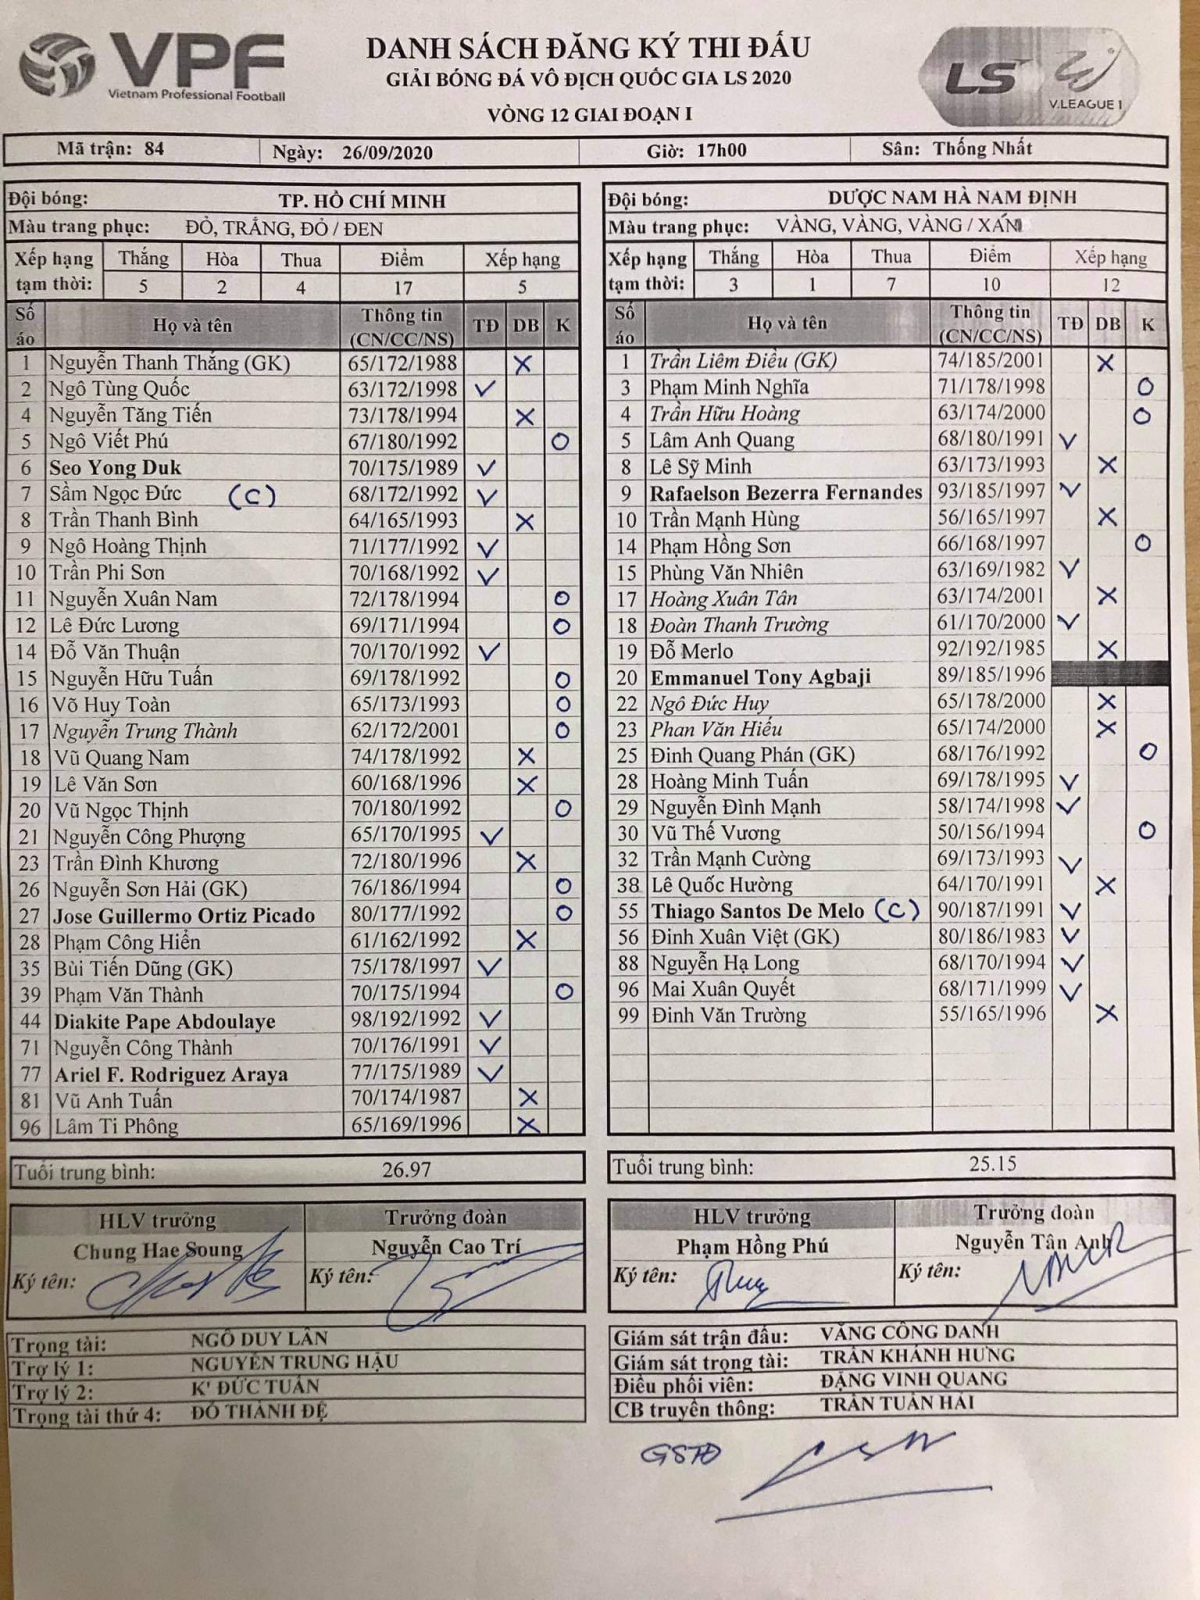 VPF
Vietnam Professional Football
DANH SÁCH ĐĂNG KÝ THI ĐẤU
GIẢI BÓNG ĐÁ VÔ ĐỊCH QUỐC GIA LS 2020
VÒNG 12 GIAI ĐOẠN I
LS V.LEAGUE 1
Mã trận: 84 Ngày: 26/09/2020 Giờ: 17h00 Sân: Thống Nhất
Đội bóng: TP. HỒ CHÍ MINH
Màu trang phục: ĐỎ, TRẮNG, ĐỎ / ĐEN
Xếp hạng tạm thời: Thắng Hòa Thua Điểm Xếp hạng
5 2 4 17 5
Số áo Họ và tên Thông tin (CN/CC/NS) TĐ DB K
1 Nguyễn Thanh Thắng (GK) 65/172/1988 X
2 Ngô Tùng Quốc 63/172/1998 ✓
4 Nguyễn Tăng Tiến 73/178/1994 X
5 Ngô Viết Phú 67/180/1992 O
6 Seo Yong Duk 70/175/1989 ✓
7 Sầm Ngọc Đức (C) 68/172/1992 ✓
8 Trần Thanh Bình 64/165/1993 X
9 Ngô Hoàng Thịnh 71/177/1992 ✓
10 Trần Phi Sơn 70/168/1992 ✓
11 Nguyễn Xuân Nam 72/178/1994 O
12 Lê Đức Lương 69/171/1994 O
14 Đỗ Văn Thuận 70/170/1992 ✓
15 Nguyễn Hữu Tuấn 69/178/1992 O
16 Võ Huy Toàn 65/173/1993 O
17 Nguyễn Trung Thành 62/172/2001 O
18 Vũ Quang Nam 74/178/1992 X
19 Lê Văn Sơn 60/168/1996 X
20 Vũ Ngọc Thịnh 70/180/1992 O
21 Nguyễn Công Phượng 65/170/1995 ✓
23 Trần Đình Khương 72/180/1996 X
26 Nguyễn Sơn Hải (GK) 76/186/1994 O
27 Jose Guillermo Ortiz Picado 80/177/1992 O
28 Phạm Công Hiển 61/162/1992 X
35 Bùi Tiến Dũng (GK) 75/178/1997 ✓
39 Phạm Văn Thành 70/175/1994 O
44 Diakite Pape Abdoulaye 98/192/1992 ✓
71 Nguyễn Công Thành 70/176/1991 ✓
77 Ariel F. Rodriguez Araya 77/175/1989 ✓
81 Vũ Anh Tuấn 70/174/1987 X
96 Lâm Ti Phông 65/169/1996 X
Tuổi trung bình: 26.97
HLV trưởng Trưởng đoàn
Chung Hae Soung Nguyễn Cao Trí
Ký tên: Ký tên:
Trọng tài: NGÔ DUY LÂN
Trợ lý 1: NGUYỄN TRUNG HẬU
Trợ lý 2: K' ĐỨC TUÂN
Trọng tài thứ 4: ĐỖ THÀNH ĐỆ
Đội bóng: DƯỢC NAM HÀ NAM ĐỊNH
Màu trang phục: VÀNG, VÀNG, VÀNG / XANH
Xếp hạng tạm thời: Thắng Hòa Thua Điểm Xếp hạng
3 1 7 10 12
Số áo Họ và tên Thông tin (CN/CC/NS) TĐ DB K
1 Trần Liêm Điều (GK) 74/185/2001 X
3 Phạm Minh Nghĩa 71/178/1998 O
4 Trần Hữu Hoàng 63/174/2000 O
5 Lâm Anh Quang 68/180/1991 ✓
8 Lê Sỹ Minh 63/173/1993 X
9 Rafaelson Bezerra Fernandes 93/185/1997 ✓
10 Trần Mạnh Hùng 56/165/1997 X
14 Phạm Hồng Sơn 66/168/1997 O
15 Phùng Văn Nhiên 63/169/1982 ✓
17 Hoàng Xuân Tân 63/174/2001 X
18 Đoàn Thanh Trường 61/170/2000 ✓
19 Đỗ Merlo 92/192/1985 X
20 Emmanuel Tony Agbaji 89/185/1996
22 Ngô Đức Huy 65/178/2000 X
23 Phan Văn Hiếu 65/174/2000 X
25 Đinh Quang Phán (GK) 68/176/1992 O
28 Hoàng Minh Tuấn 69/178/1995 ✓
29 Nguyễn Đình Mạnh 58/174/1998 ✓
30 Vũ Thế Vương 50/156/1994 O
32 Trần Mạnh Cường 69/173/1993 ✓
38 Lê Quốc Hường 64/170/1991 X
55 Thiago Santos De Melo (C) 90/187/1991 ✓
56 Đinh Xuân Việt (GK) 80/186/1983 ✓
88 Nguyễn Hạ Long 68/170/1994 ✓
96 Mai Xuân Quyết 68/171/1999 ✓
99 Đinh Văn Trường 55/165/1996 X
Tuổi trung bình: 25.15
HLV trưởng Trưởng đoàn
Phạm Hồng Phú Nguyễn Tân Anh
Ký tên: Ký tên:
Giám sát trận đấu: VĂNG CÔNG DANH
Giám sát trọng tài: TRẦN KHÁNH HƯNG
Điều phối viên: ĐẶNG VINH QUANG
CB truyền thông: TRẦN TUẤN HẢI
GSTĐ